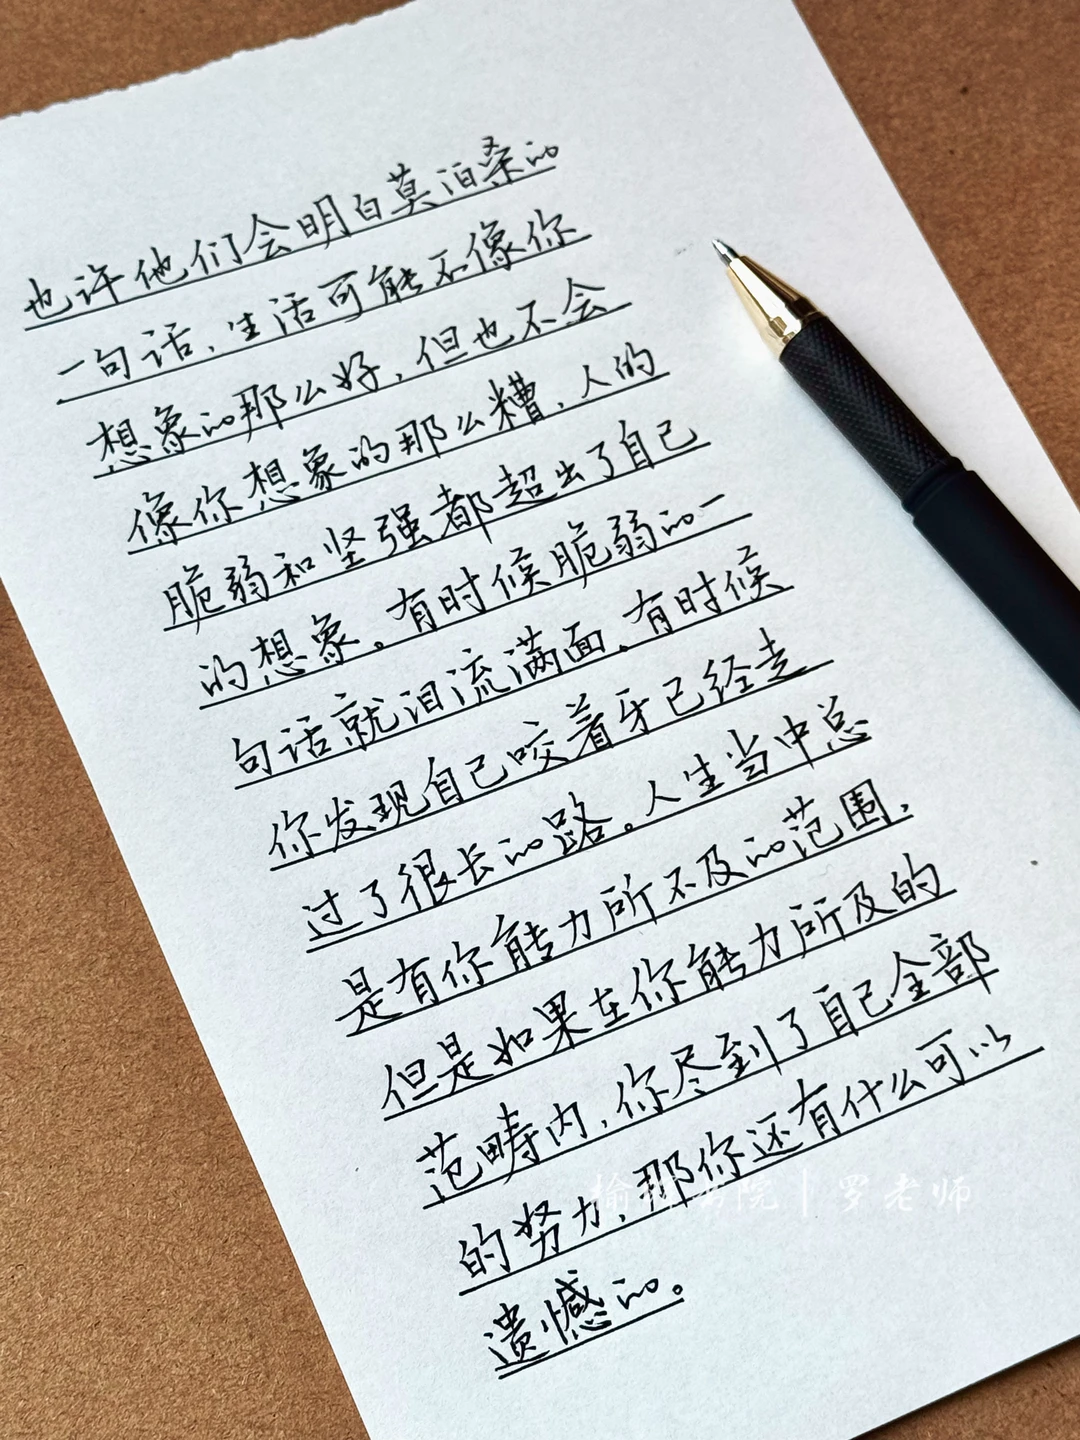 也许他们会明白莫泊桑的
一句话、生活可能不像你
想象的那么好,但也不会
像你想象的那么糟、人的
脆弱和坚强都超出了自己
的想象。有时候脆弱的一
句话就泪流满面、有时候
你发现自己咬着牙已经走
过了很长的路。人生当中总
是有你能力所不及的范围、
但是如果在你能力所及的
范畴内,你尽到了自己全部
的努力、那你还有什么可以
遗憾的。
书院|罗老师